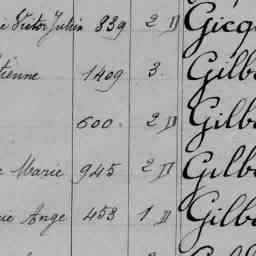 Victor Julien 839 2 D Gicq
tienne 1409 3. Gilb
600. 2 D Gilb
e Marie 945 2 D Gilb
ie Ange 453 1 D Gilb